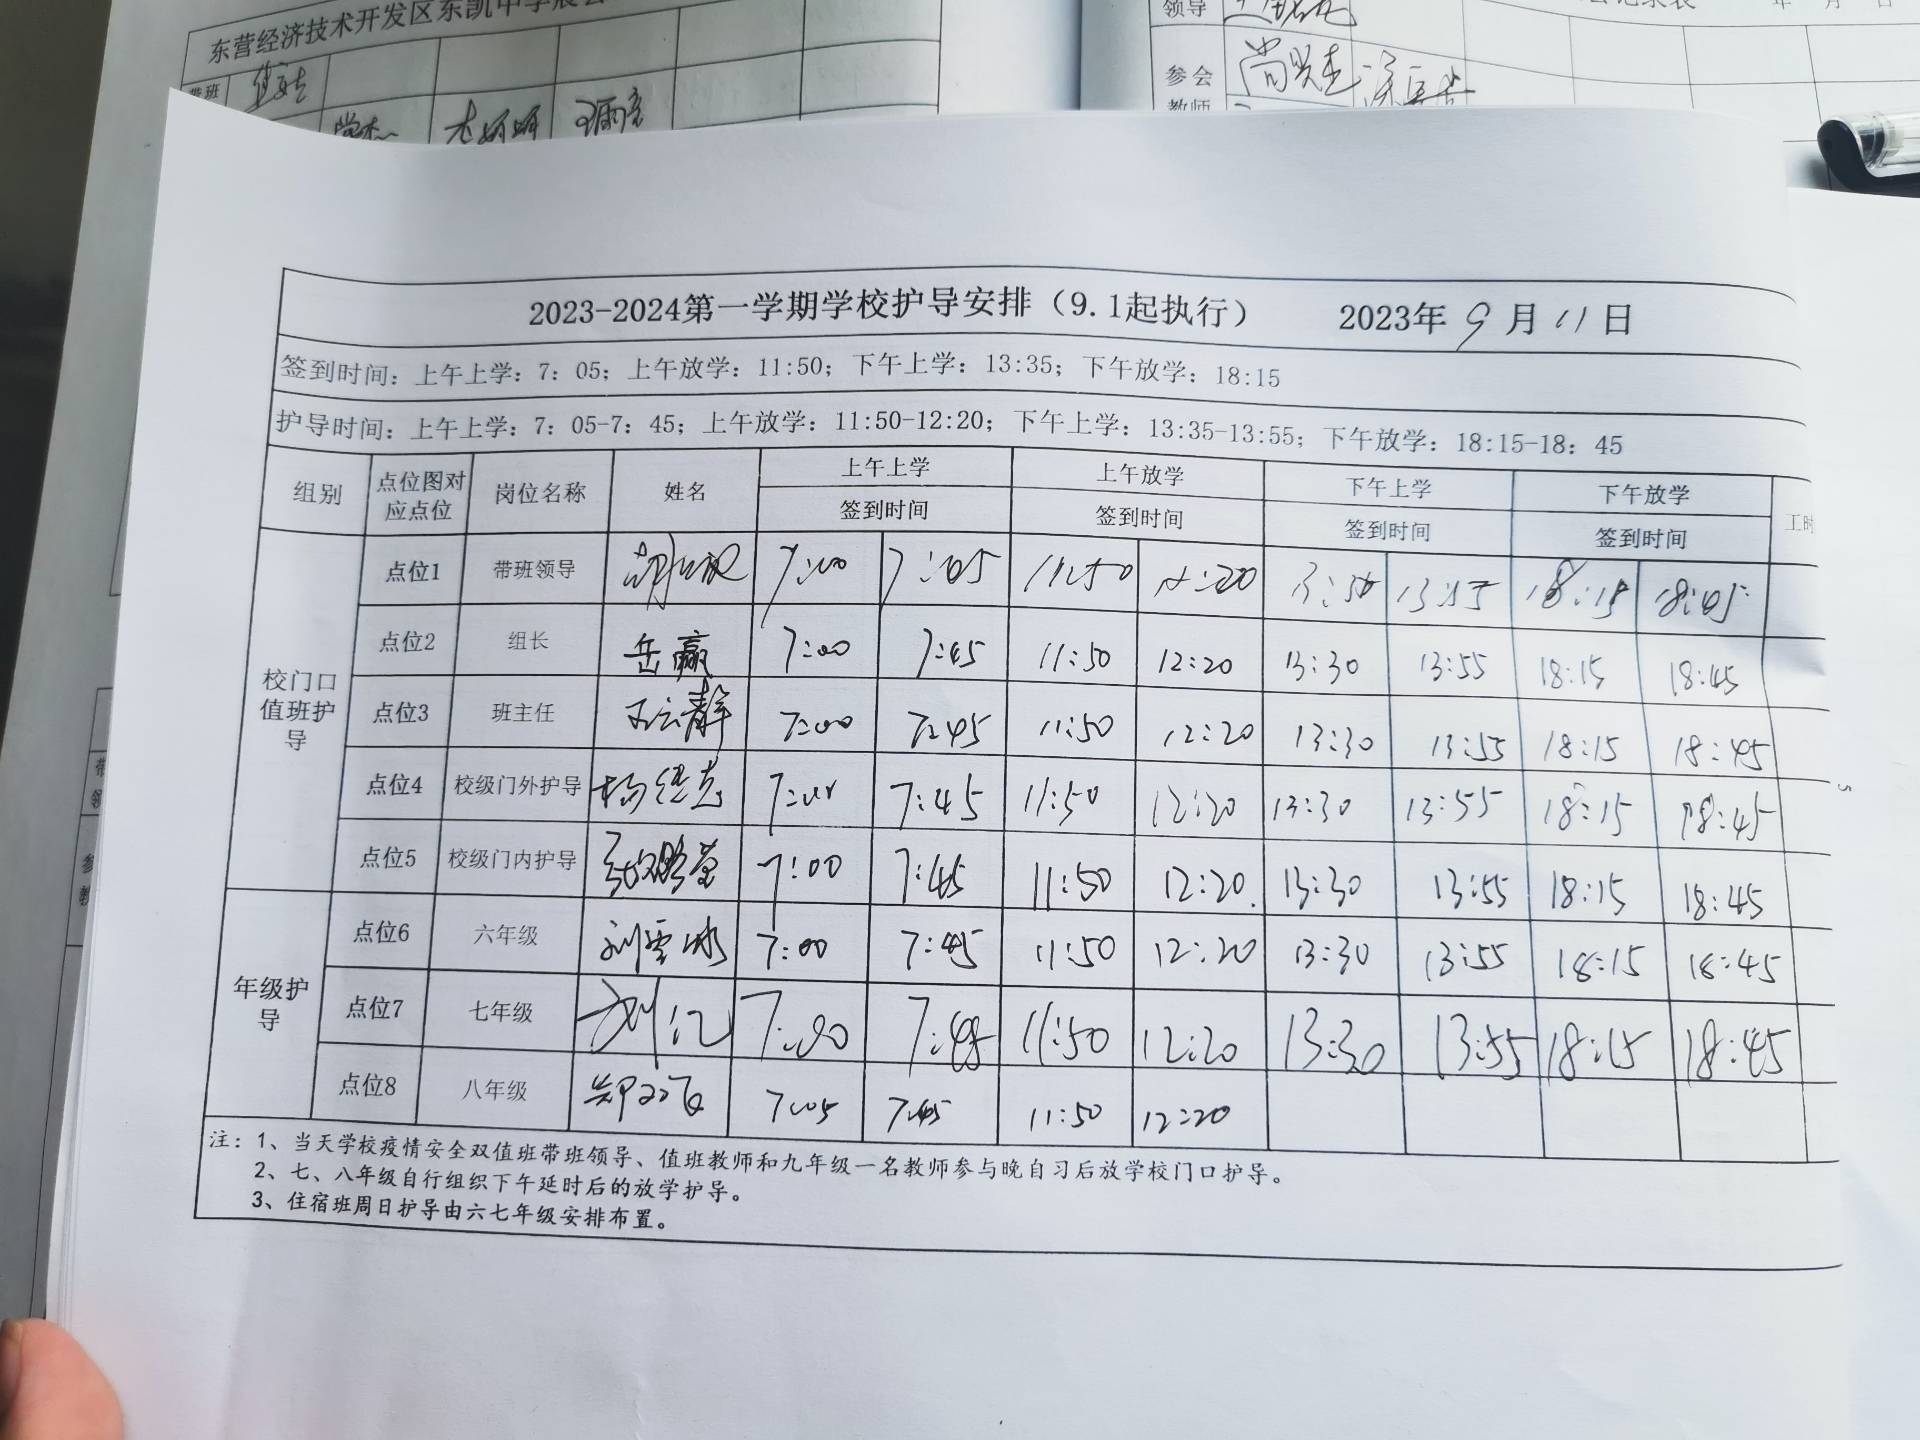 东营经济技术开发区东凯中学晨会
带班
领导
参会
教师
年 月 日
2023-2024第一学期学校护导安排（9.1起执行） 2023年 9 月 11 日
签到时间：上午上学：7：05；上午放学：11:50；下午上学：13:35；下午放学：18:15
护导时间：上午上学：7：05-7：45；上午放学：11:50-12:20；下午上学：13:35-13:55；下午放学：18:15-18：45
组别 点位图对应点位 岗位名称 姓名 上午上学 上午放学 下午上学 下午放学 工时
签到时间 签到时间 签到时间 签到时间
校门口值班护导
点位1 带班领导 7:00 11:50 12:20 18:15 18:45
点位2 组长 岳赢 7:00 7:45 11:50 12:20 13:30 13:55 18:15 18:45
点位3 班主任 7:00 7:45 11:50 12:20 13:30 13:55 18:15 18:45
点位4 校级门外护导 7:00 7:45 11:50 12:20 13:30 13:55 18:15 18:45
点位5 校级门内护导 7:00 7:45 11:50 12:20 13:30 13:55 18:15 18:45
年级护导
点位6 六年级 刘雪冰 7:00 7:45 11:50 12:20 13:30 13:55 18:15 18:45
点位7 七年级 刘江 7:00 7:45 11:50 12:20 13:30 13:55 18:15 18:45
点位8 八年级 7:05 7:45 11:50 12:20
注：1、当天学校疫情安全双值班带班领导、值班教师和九年级一名教师参与晚自习后放学校门口护导。
2、七、八年级自行组织下午延时后的放学护导。
3、住宿班周日护导由六七年级安排布置。